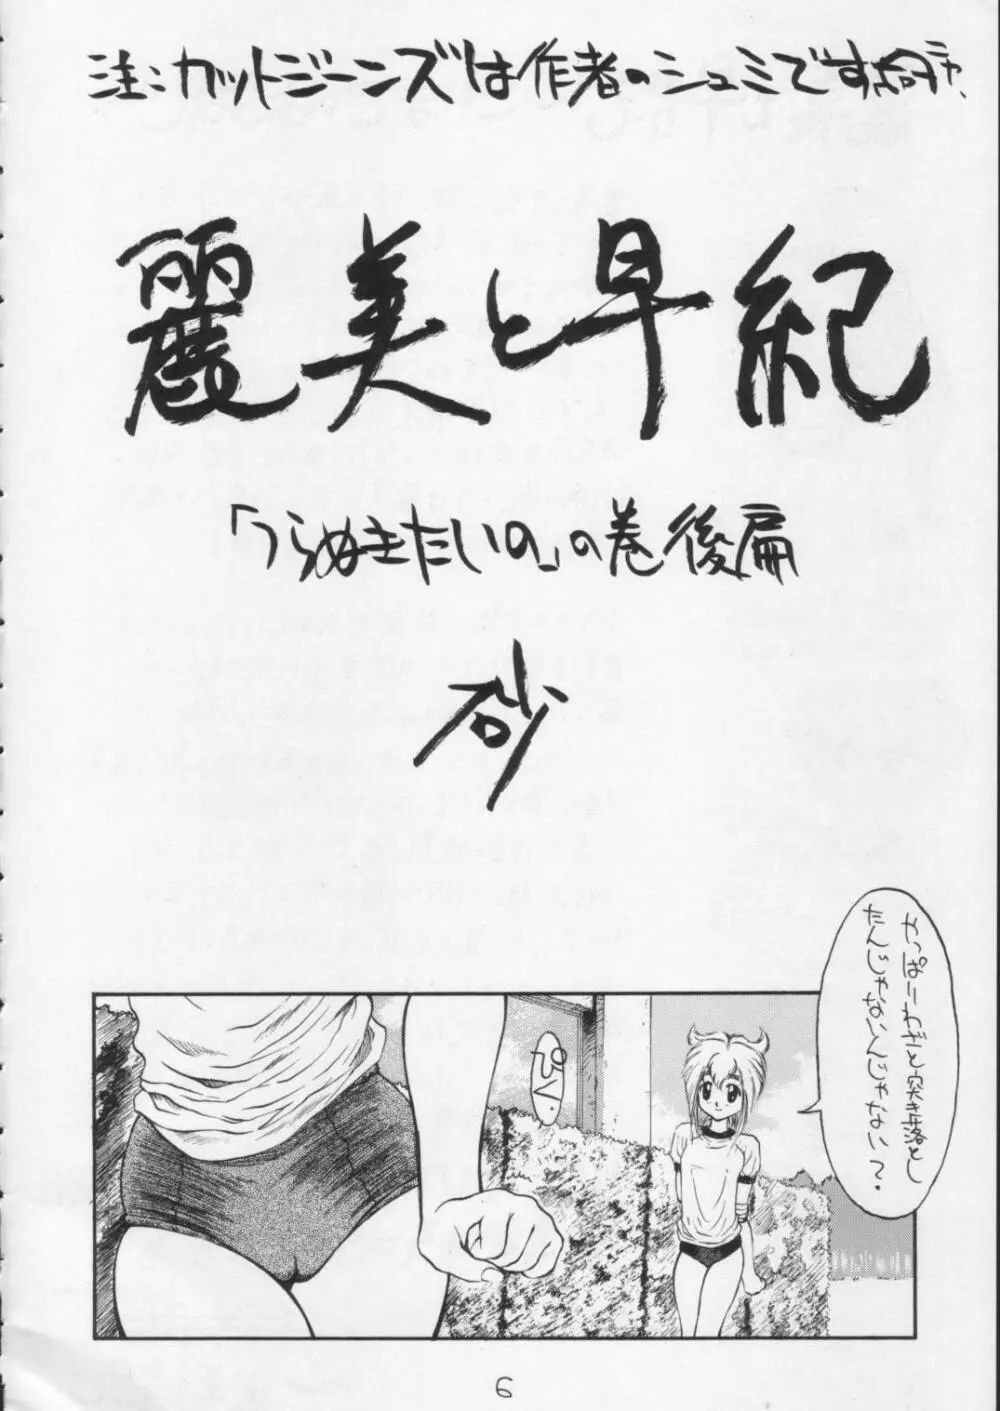 注:カットジーンズは作者のシュミです
麗美と早紀
「うらぬきたいの」の巻 後扁
砂
やっぱりわざと突き落とし
たんじゃないんじゃない?
6